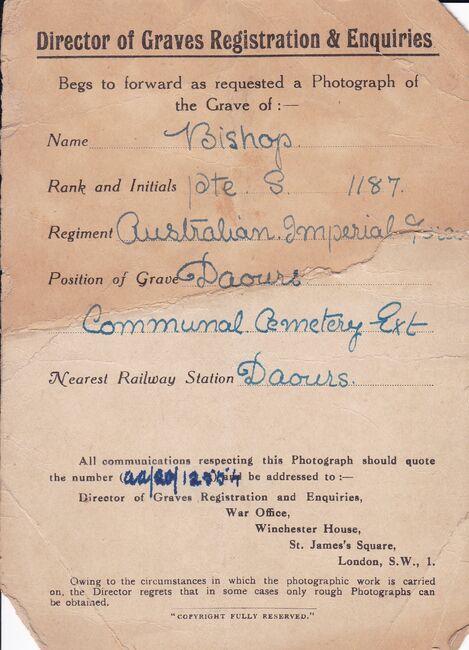 Director of Graves Registration & Enquiries
Begs to forward as requested a Photograph of
the Grave of :—
Name Bishop.
Rank and Initials Pte S. 1187.
Regiment Australian. Imperial
Position of Grave Daours
Communal Cemetery Ext
Nearest Railway Station Daours.
All communications respecting this Photograph should quote
the number ( ) and be addressed to :—
Director of Graves Registration and Enquiries,
War Office,
Winchester House,
St. James's Square,
London, S.W., 1.
Owing to the circumstances in which the photographic work is carried
on, the Director regrets that in some cases only rough Photographs can
be obtained.
"COPYRIGHT FULLY RESERVED."